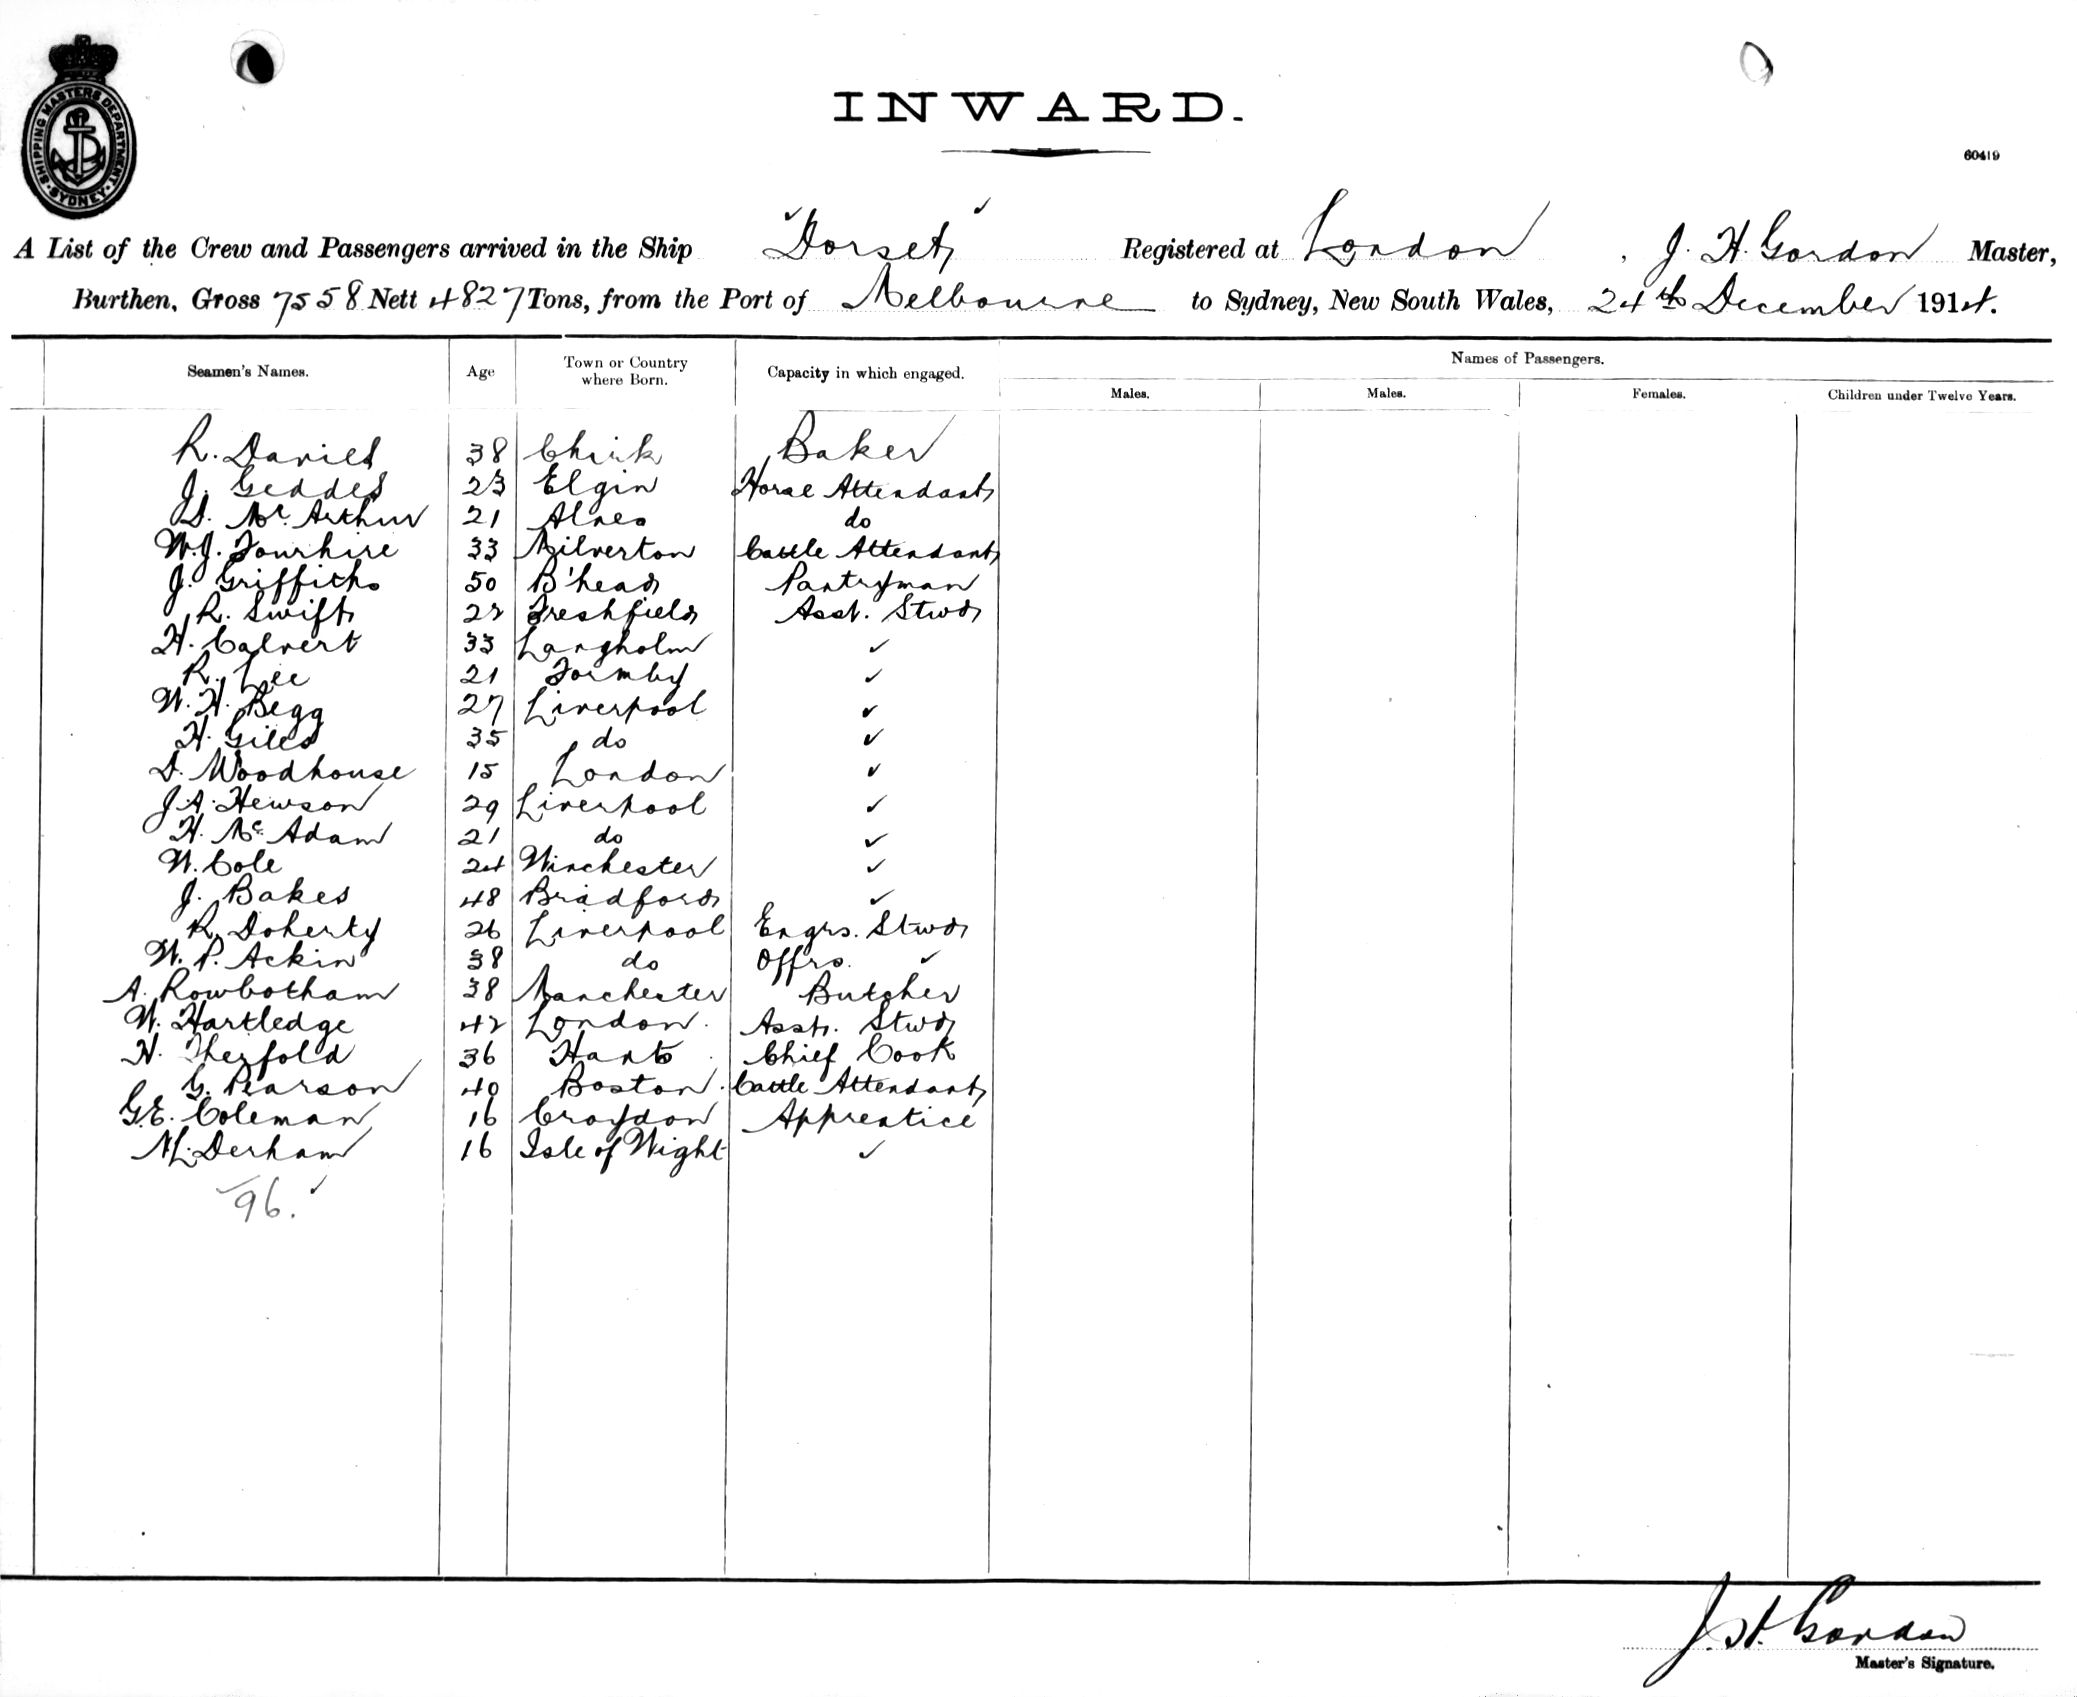 SHIPPING MASTERS DEPARTMENT. SYDNEY.
INWARD.
60419
A List of the Crew and Passengers arrived in the Ship Dorset Registered at London, J. H. Gordon Master,
Burthen, Gross 7558 Nett 4827 Tons, from the Port of Melbourne to Sydney, New South Wales, 24th December 1914.
Seamen's Names. Age Town or Country where Born. Capacity in which engaged. Names of Passengers.
Males. Males. Females. Children under Twelve Years.
R. Davies 38 Chirk Baker
J. Geddes 23 Elgin Horse Attendant
D. Mc. Arthur 21 Alness do
W.J. 33 Milverton Cattle Attendant
J. Griffiths 50 B'head Pantryman
R. Swift 22 Freshfield Asst. Stwd
H. Calvert 33 Langholm ✓
R. Lee 21 Formby ✓
W. H. Begg 27 Liverpool ✓
H. Giles 35 do ✓
D. Woodhouse 15 London ✓
J.A. Hewson 29 Liverpool ✓
H. Mc. Adam 21 do ✓
W. Cole 24 Winchester ✓
J. Bakes 48 Bradford ✓
R. Doherty 26 Liverpool Engrs. Stwd
W. P. Ackin 38 do Offrs. ✓
A. Rowbotham 38 Manchester Butcher
W. Hartledge 42 London. Asst. Stwd
H. Therfold 36 Hants Chief Cook
G. Pearson 40 Boston. Cattle Attendant
G.E. Coleman 16 Croydon Apprentice
N.L. Derham 16 Isle of Wight ✓
96. ✓
J. H. Gordon
Master's Signature.